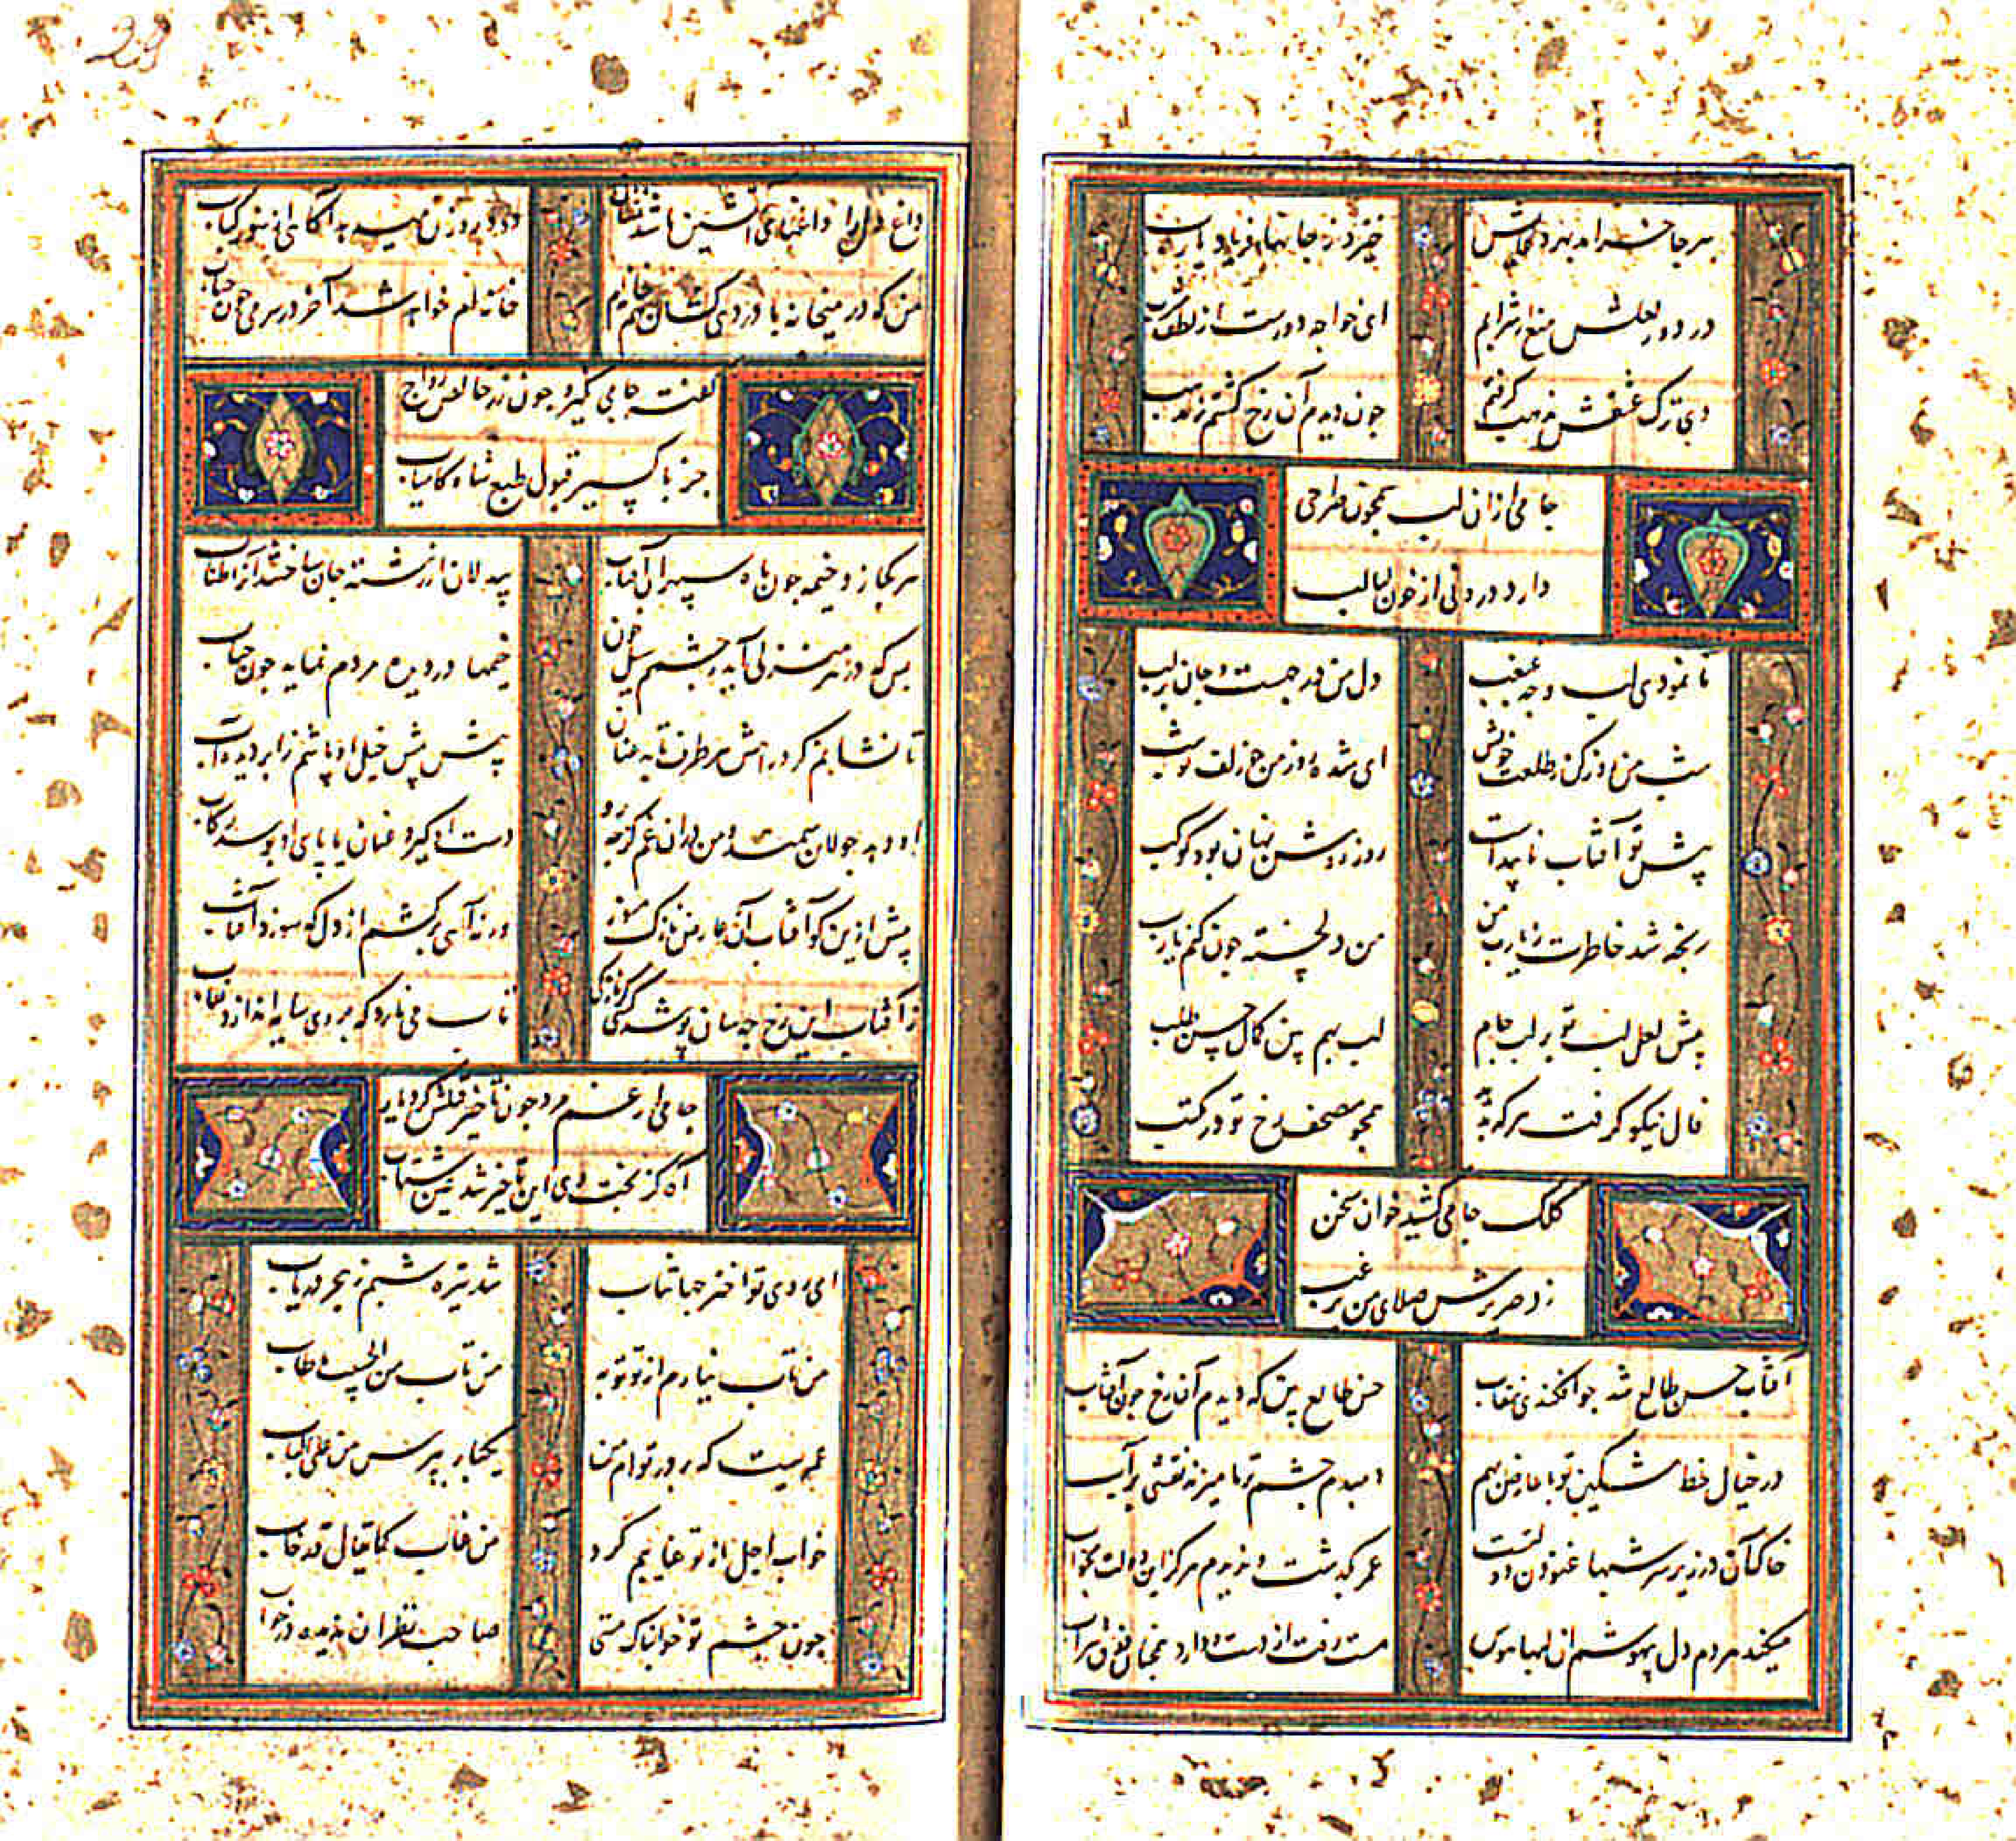 هر جا خرامد بهر دعایش
خیزد ز جانها فریاد یارب
در دور لعلش منع از شرابم
ای خواجه دورست از لطف مشرب
دی ترک عشقش مذهب گرفتم
چون دیدم آن رخ گشتم ز مذهب
جامی ازان لب همچون صراحی
دارد درونی از خون لبالب
تا نمودی لب و چه غبغب
دل من در چهست و جان بر لب
شب من روز کن بطلعت خویش
ای شده روز من چو زلف تو شب
پیش تو آفتاب ناپیداست
روز روشن نهان بود کوکب
رنجه شد خاطرت ز یارب من
من دلخسته چون کنم یارب
پیش لعل لبت تو بر لب جام
لب نهم بین کمال حسن طلب
فال نیکو گرفت هر که بدید
همچو مصحف رخ تو در مکتب
کلک جامی کشید خوان سخن
زد صریرش صلای من یرغب
آفتاب حسن طالع شد چو افکندی نقاب
حسن طالع بین که دیدم آن رخ چون آفتاب
در خیال خط مشکین تو با عارض بهم
دمبدم چشم تر ما میزند نقشی بر آب
خاک آن در زیر سر شبها غنودن دولتست
عمر گذشت و ندیدم هرگز این دولت بخواب
میکند مردم دل بیهوشم از لبها هوس
مست رفت از دست و دارد همچنان ذوق شراب
داغ دل را داغهای آتشین باشد نشان
دود روزن میدهد آگاهی از سوز کباب
من که در میخانه با دردی کشان همخانه ام
خانه ام خواهد شد آخر در سر می چون حباب
گفته جامی نگیرد چون زر خالص رواج
جز باکسیر قبول طبع شاه کامیاب
هر کجا زد خیمه چون ماه سپهر آن آفتاب
بیدلان از رشته جان ساختند آنرا طناب
بس که در هر منزلی آید ز چشمم سیل خون
خیمها در دیده مردم نماید چون حباب
تا نشانم گرد راهش هر طرف تابد عنان
پیش پیش خیل او پاشم ز ابر دیده آب
او به جولان سمند و من دران غم کز چه رو
دست او گیرد عنان یا پای او بوسد رکاب
بیش ازین گو آفتاب آن عارض نازک مسوز
ورنه آهی برکشم از دل که سوزد آفتاب
ز آفتاب این رخ چه سان پوشد کسی کز نازکی
تاب می نارد که بر وی سایه اندازد نقاب
جامی از غم مرد چون تأخیر قتلش کرد یار
آه کز بخت وی این تأخیر شد عین شتاب
ای روی تو اختر جهانتاب
شد تیره شبم ز هجر دریاب
من تاب نیارم از تو توبه
من تاب من الحبیب ما طاب
عمریست که بر در توام من
یکبار بپرس من علی الباب
خواب اجل از تو غایبم کرد
من غاب کما یقال قد خاب
چون چشم تو خوابناک مستی
صاحب نظران ندیده در خواب